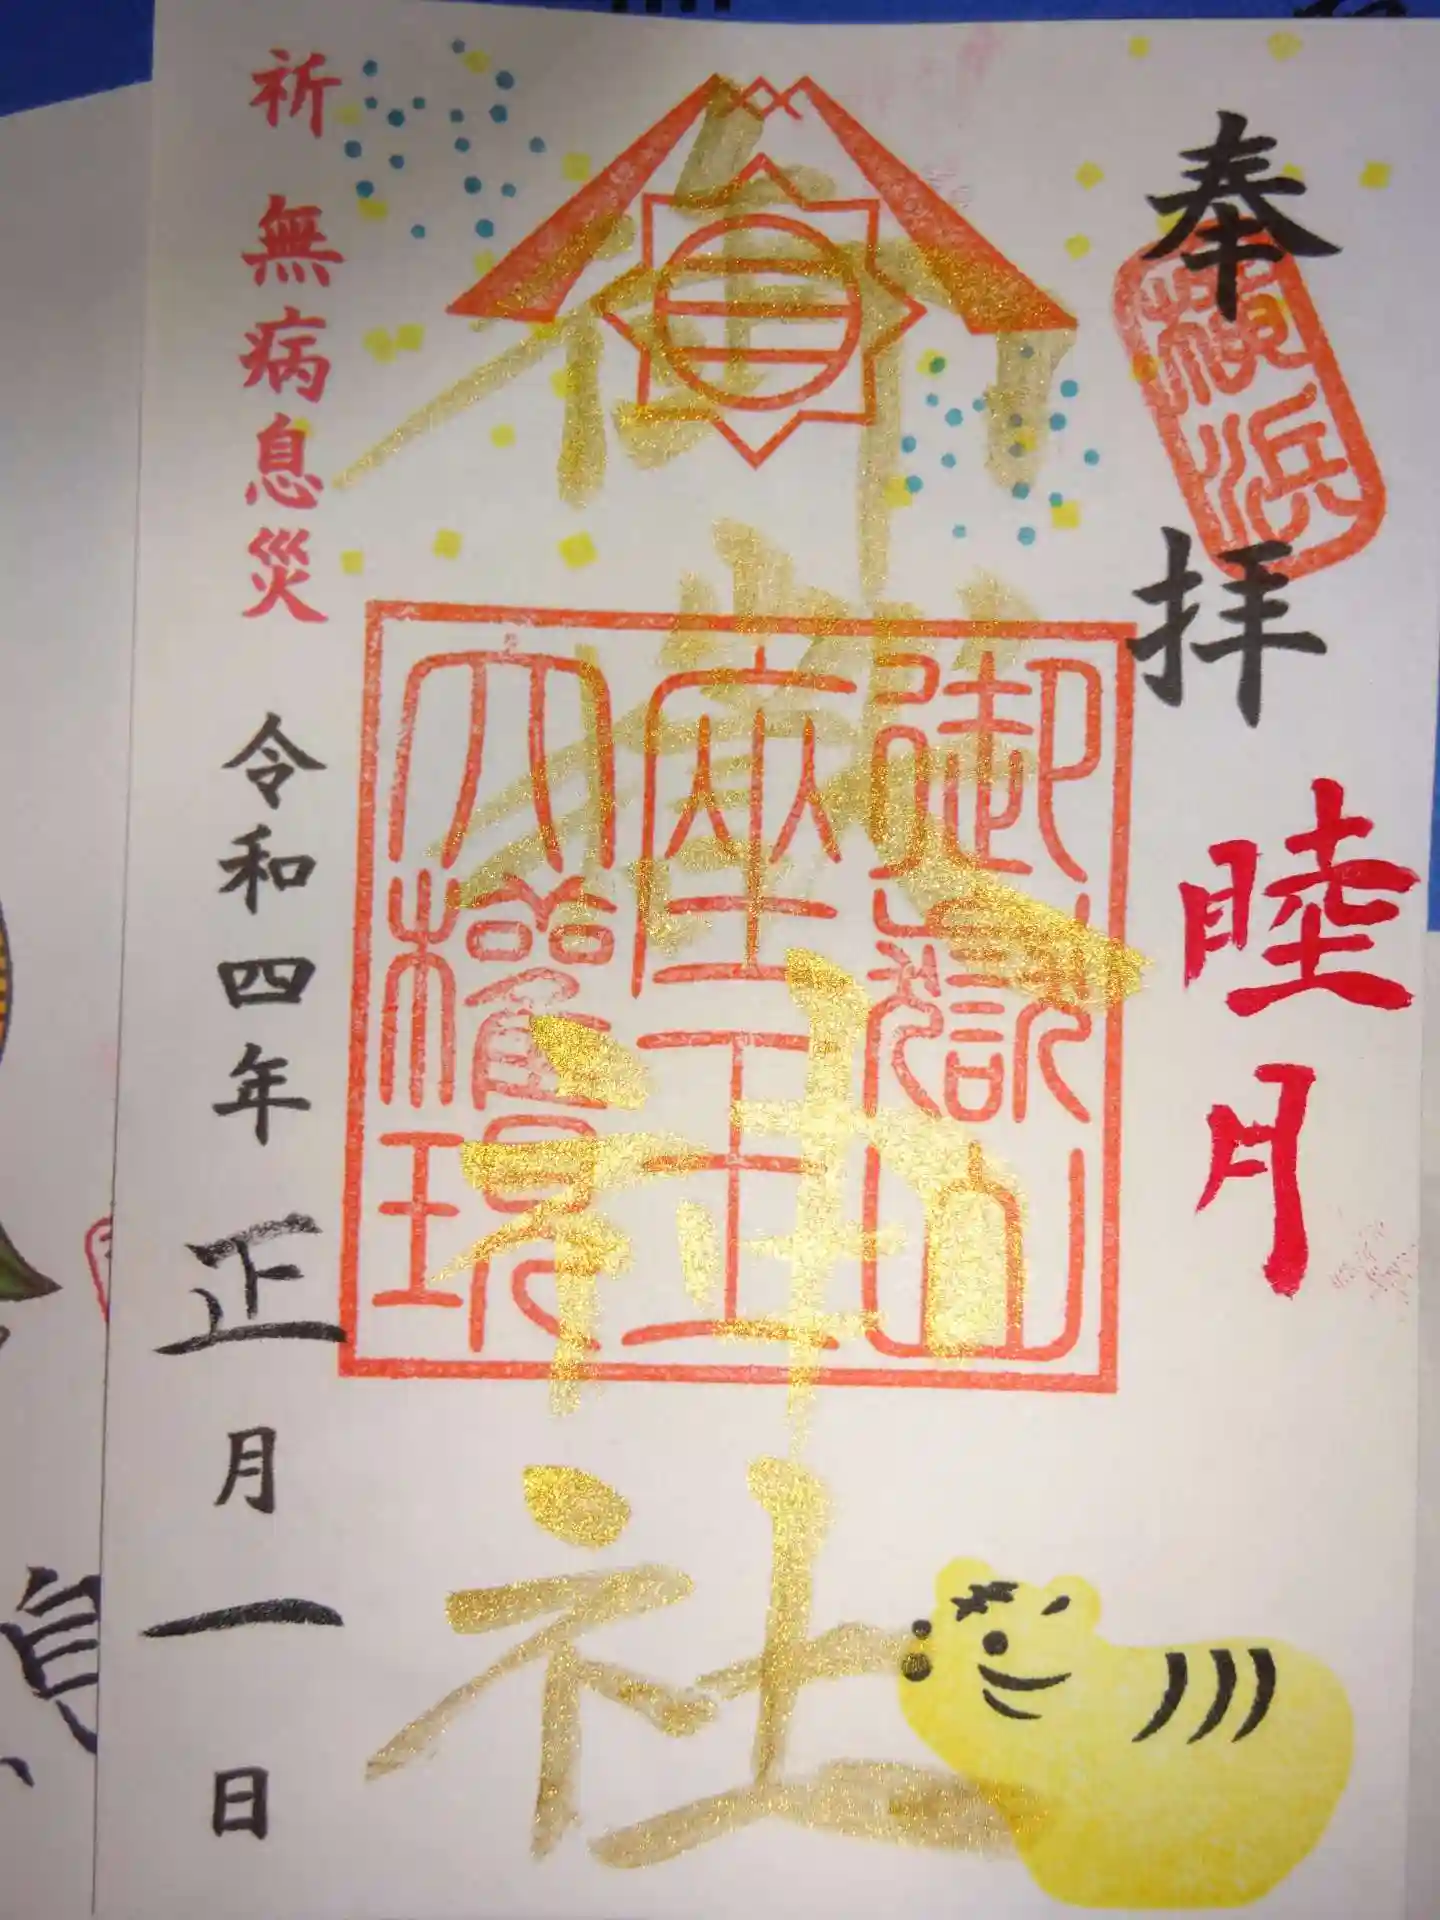 奉拝
横浜
睦月
御嶽神社
御嶽山
座王
大權現
祈 無病息災
令和四年 正月一日